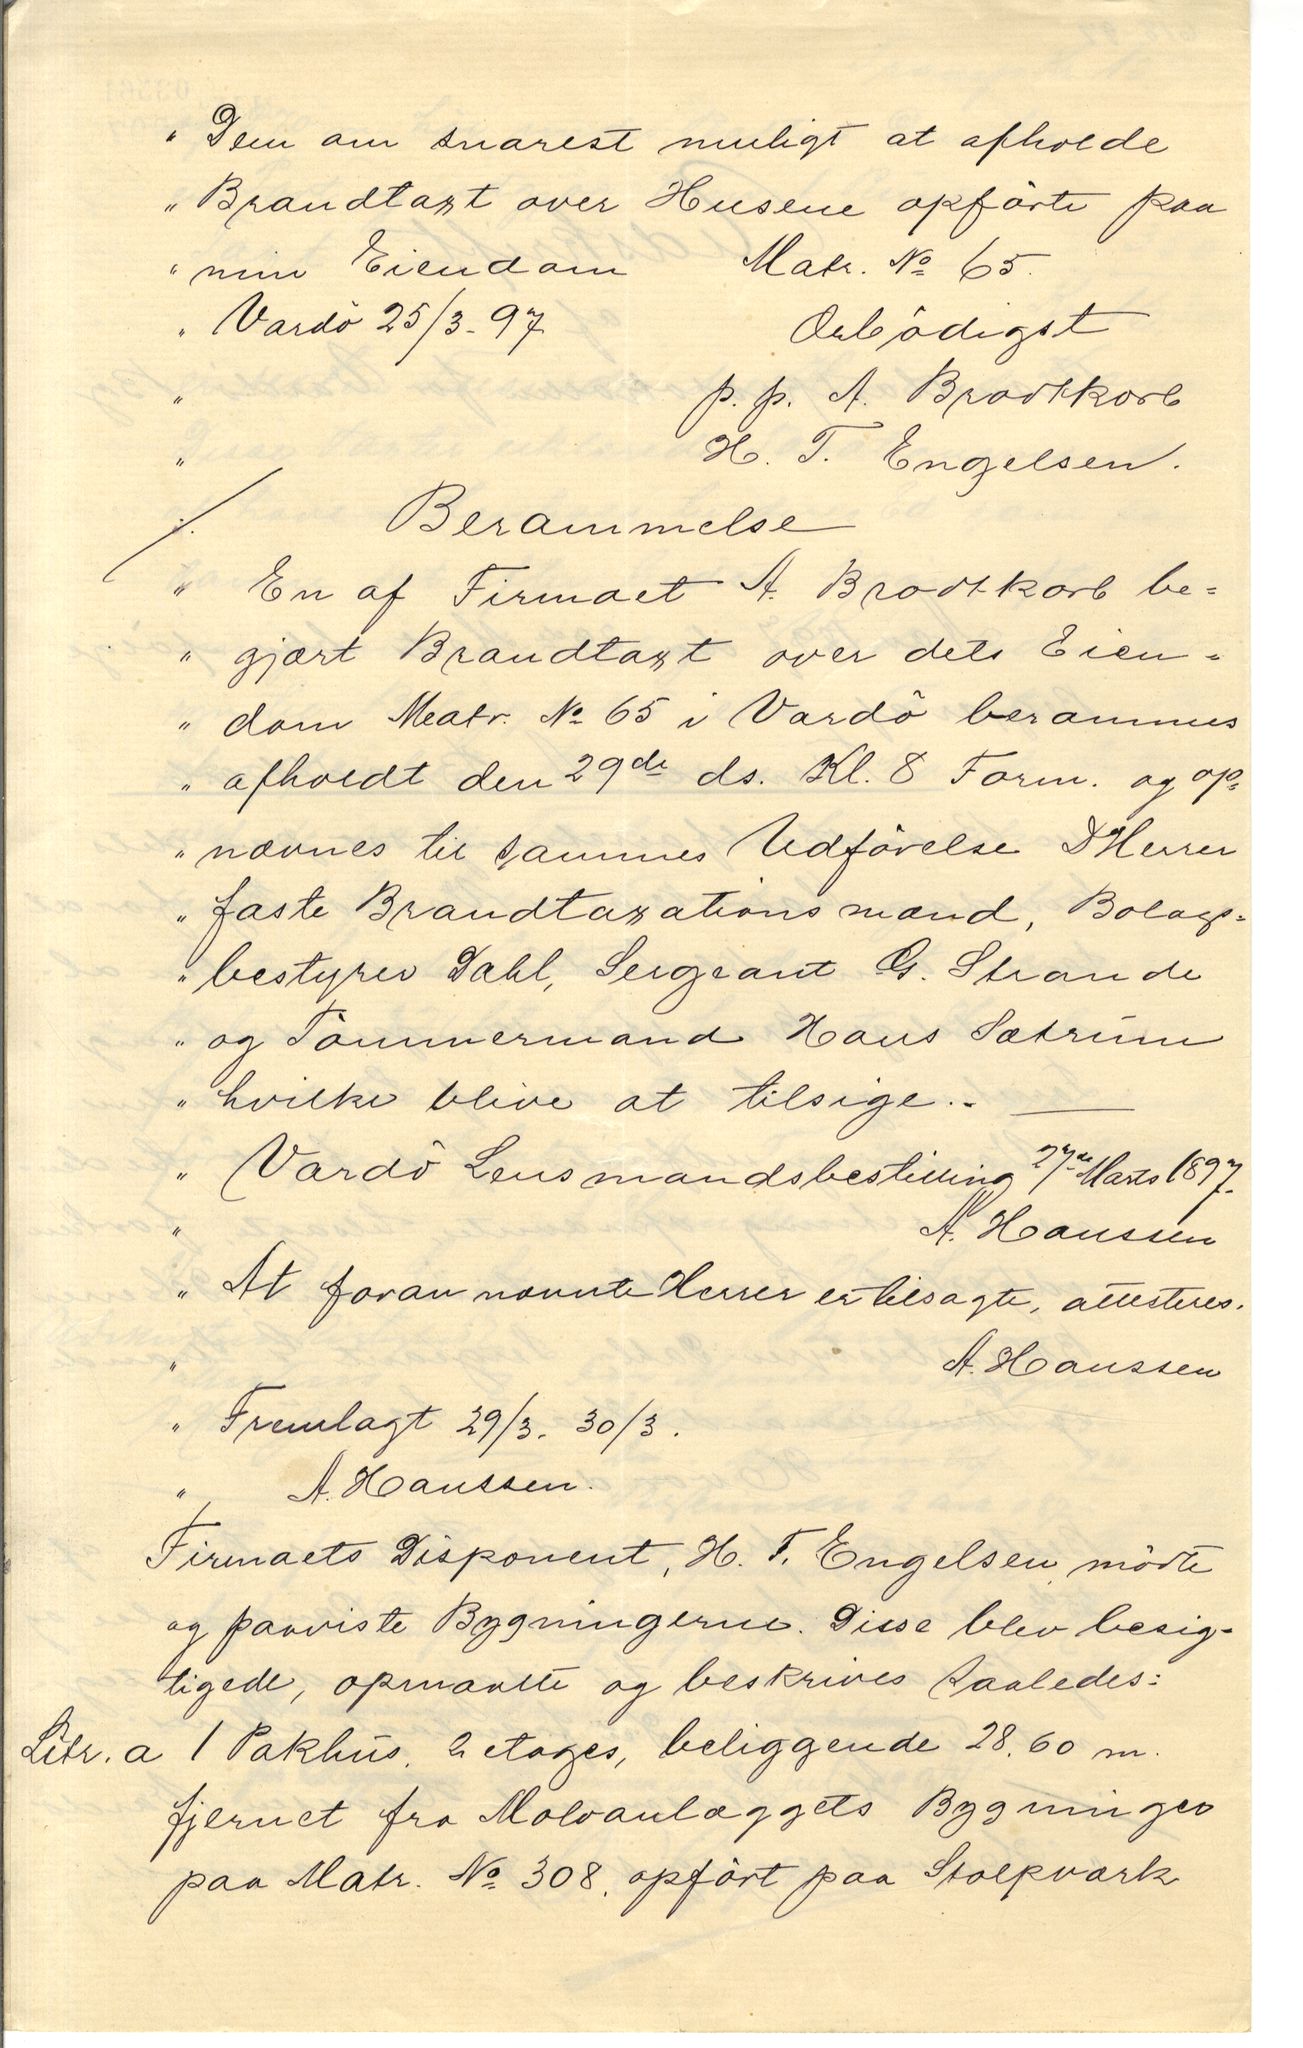 " Dem om snarest muligt at afholde
" Brandtaxt over Husene opførte paa
" min Eiendom Matr. No 65.
" Vardö 25/3-97. Ærbödigst
" p. p. A. Brodtkorb
" H. T. Engelsen.
./. Berammelse
" En af Firmaet A. Brodtkorb be=
" gjært Brandtaxt over dets Eien=
" dom Matr. No 65 i Vardö berammes
" afholdt den 29de ds. Kl. 8 Form. og op=
" nævnes til sammes Udförelse DHerrer
" faste Brandtaxationsmænd, Bolags=
" bestyrer Dahl, Sergeant G. Strande
" og Tömmermand Hans Sætrum
" hvilke blive at tilsige.-
" Vardö Lensmandsbestilling 27de Marts 1897.
" A. Hanssen
" At foran nævnte Herrer er tilsagte, attesteres.
" A. Hanssen
" Fremlagt 29/3. 30/3.
" A. Hanssen.
Firmaets Disponent, H. T. Engelsen mödte
og paaviste Bygningerne. Disse blev besig-
tigede, opmaalte og beskrives saaledes:
Litr. a 1 Pakhus, 2 etages, beliggende 28.60 m.
fjernet fra Moloanlæggets Bygninger
paa Matr. No 308, opfört paa Stolpværk